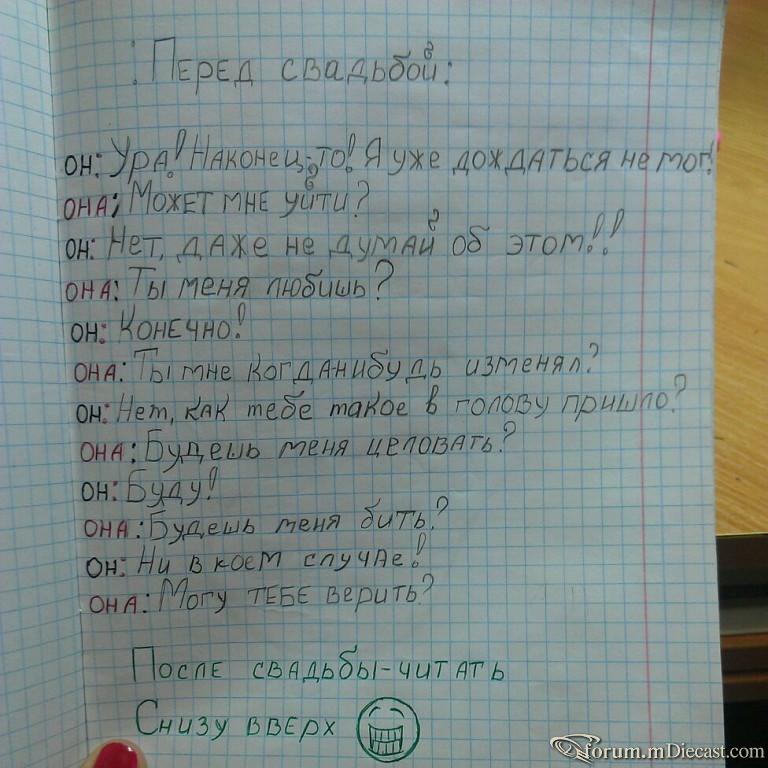 Перед свадьбой:
он: Ура! Наконец-то! Я уже дождаться не мог!
она: Может мне уйти?
он: Нет, даже не думай об этом!!
она: Ты меня любишь?
он: Конечно!
она: Ты мне когда-нибудь изменял?
он: Нет, как тебе такое в голову пришло?
она: Будешь меня целовать?
он: Буду!
она: Будешь меня бить?
он: Ни в коем случае!
она: Могу тебе верить?
После свадьбы-читать
Снизу вверх
forum.mDiecast.com